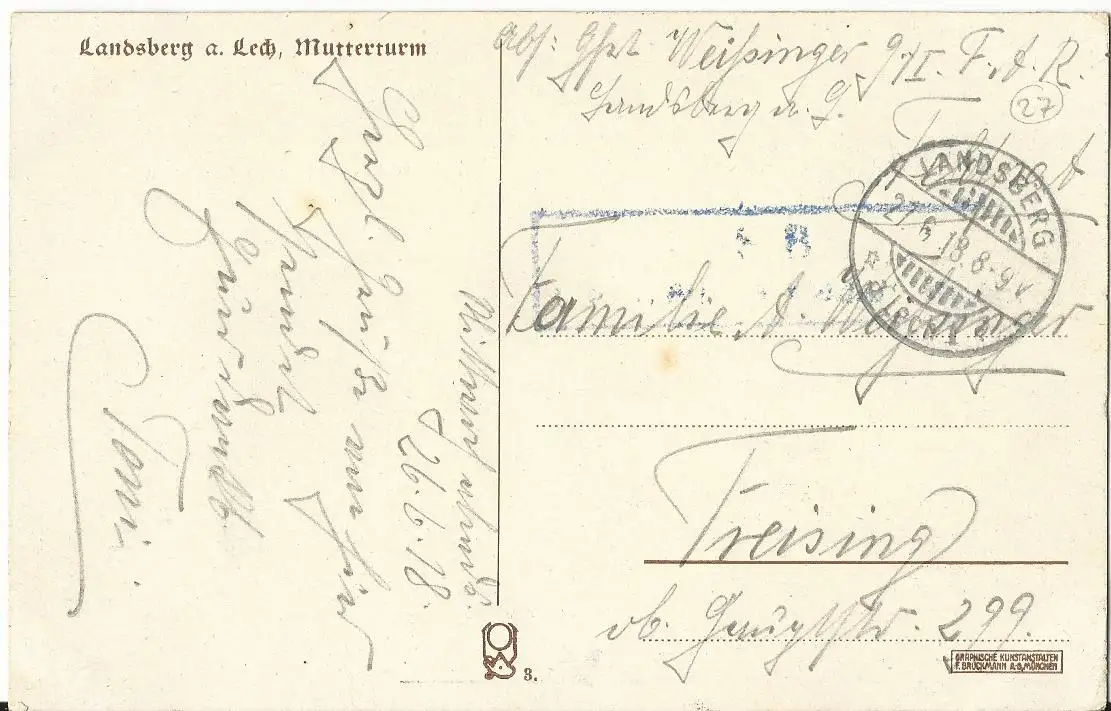 Landsberg a. Lech, Mutterturm
Abs: Gfrt. Weißinger 9/I. F. A. R.
Landsberg a. L.
27
LANDSBERG
27 6 18 8-9 V
a. LECH 1
Familie A. Weißinger
Freising
ob. Hauptstr. 299.
Mittwoch abends.
26.6.18.
Herzl. Grüße von hier
sendet
Toni.
3.
GRAPHISCHE KUNSTANSTALTEN
F. BRUCKMANN A.G. MÜNCHEN